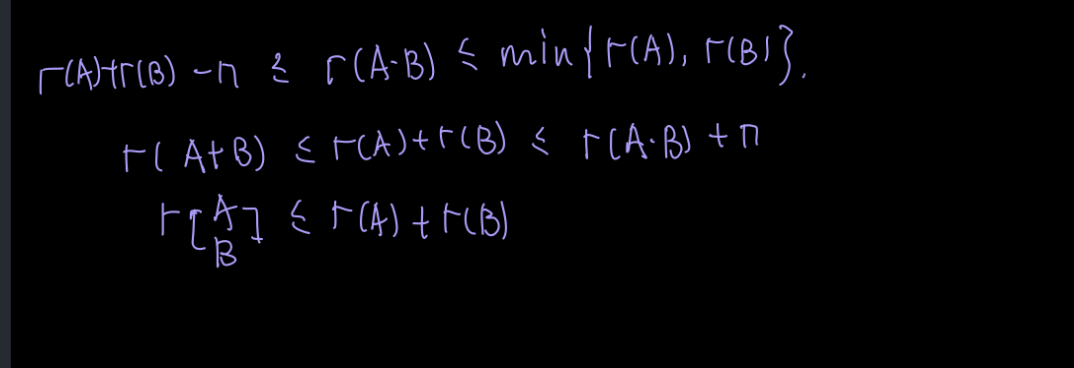 r(A)+r(B) - n ≤ r(A·B) ≤ min{r(A), r(B)}.
r(A+B) ≤ r(A)+r(B) ≤ r(A·B) + n
r[A B] ≤ r(A) + r(B)